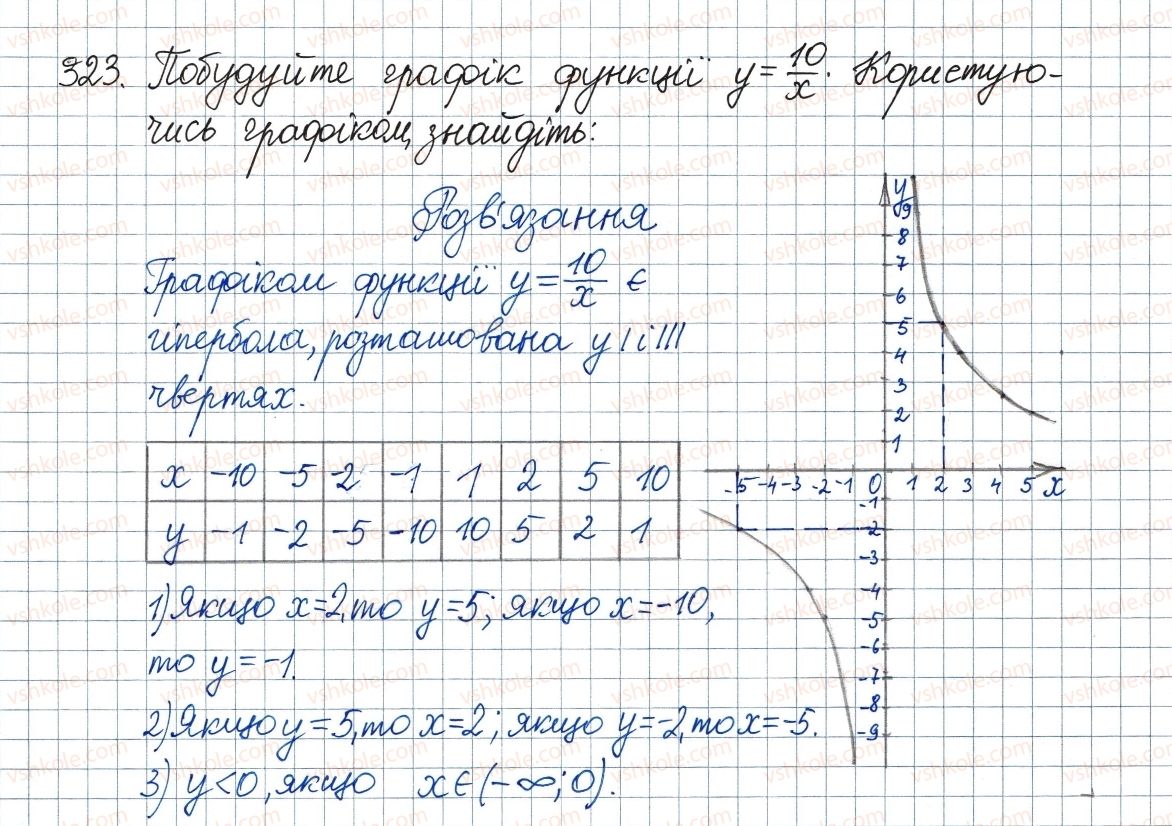 323. Побудуйте графік функції y = 10/x. Користую-
чись графіком, знайдіть:
Розв'язання
Графіком функції y = 10/x є
гіпербола, розташована у I і III
чвертях.
x -10 -5 -2 -1 1 2 5 10
y -1 -2 -5 -10 10 5 2 1
1) Якщо x=2, то y=5; якщо x=-10,
то y=-1.
2) Якщо y=5, то x=2; якщо y=-2, то x=-5.
3) y<0, якщо x∈(-∞;0).
y
9
8
7
6
5
4
3
2
1
-5 -4 -3 -2 -1 0 1 2 3 4 5 x
-1
-2
-3
-4
-5
-6
-7
-8
-9
vshkole.com